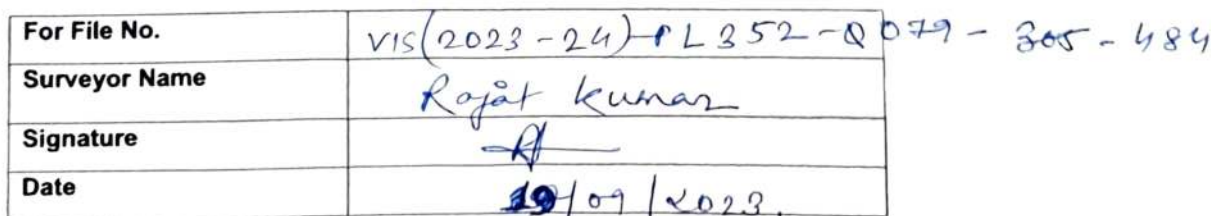 For File No. VIS(2023-24)-PL352-Q079-305-484
Surveyor Name Rajat Kumar
Signature
Date 19/09/2023.